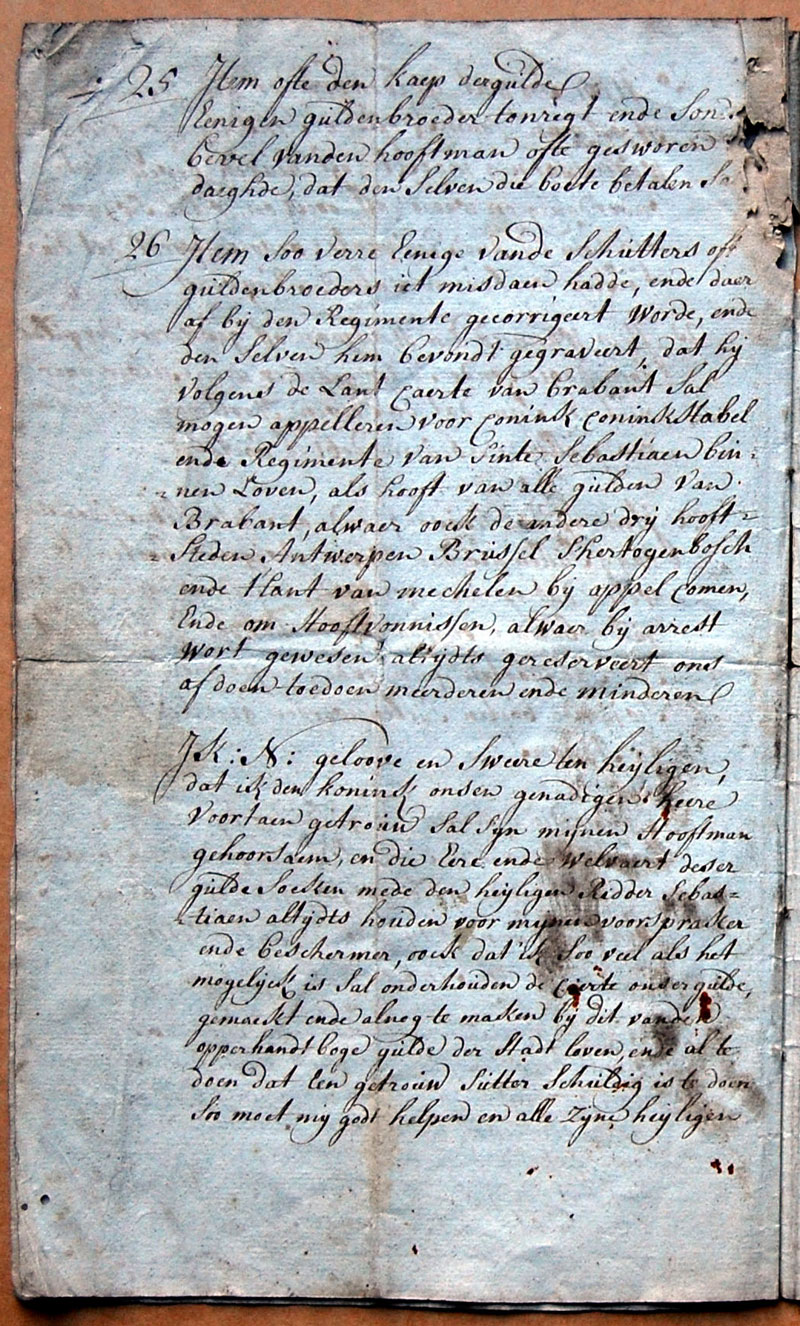 25 Item ofte den kaep dergulde
Eenigen guldenbroeder tonregt ende Son
bevel vanden hooftman ofte gesworen
daeghde, dat den Selven die boete betalen Sa
26 Item Soo verre Eenige vande Schutters oft
guldenbroeders iet misdaen hadde, ende daer
af bij den Regimente gecorrigeert worde, ende
den Selven hem bevondt gegraveert, dat hij
volgens de Lant Caerte van brabant Sal
mogen appelleren voor Conink Coninkstabel
ende Regimente van Sinte Sebastiaen bin=
=nen Loven, als hooft van alle gulden van
Brabant, alwaer oock de andere drij hooft=
=Steden Antwerpen Brussel Shertogenbosch
ende tLant van mechelen bij appel Comen,
Ende om Hooftvonnissen, alwaer bij arrest
wort gewesen altijdts gereserveert ons
af doen toedoen meerderen ende minderen
Ik: N: geloove en Sweere ten heijligen,
dat ik den konink onsen genadigen heere
voortaen getrouw Sal Syn mijnen Hooftman
gehoorsaem, en die Eere ende welvaert deser
gulde Soeken mede den heijligen Ridder Sebas=
=tiaen altijdts houden voor mijnen voorspraker
ende beschermer, oock dat ik Soo veel als het
mogelijck is Sal onderhouden de Caerte onser gulde,
gemaeckt ende alnog te maken bij dit vande
opperhandt boge gulde der Stadt loven, ende al te
doen dat Een getrouw Sutter Schuldig is te doen
Soo moet mij godt helpen en alle Zijne heijligen